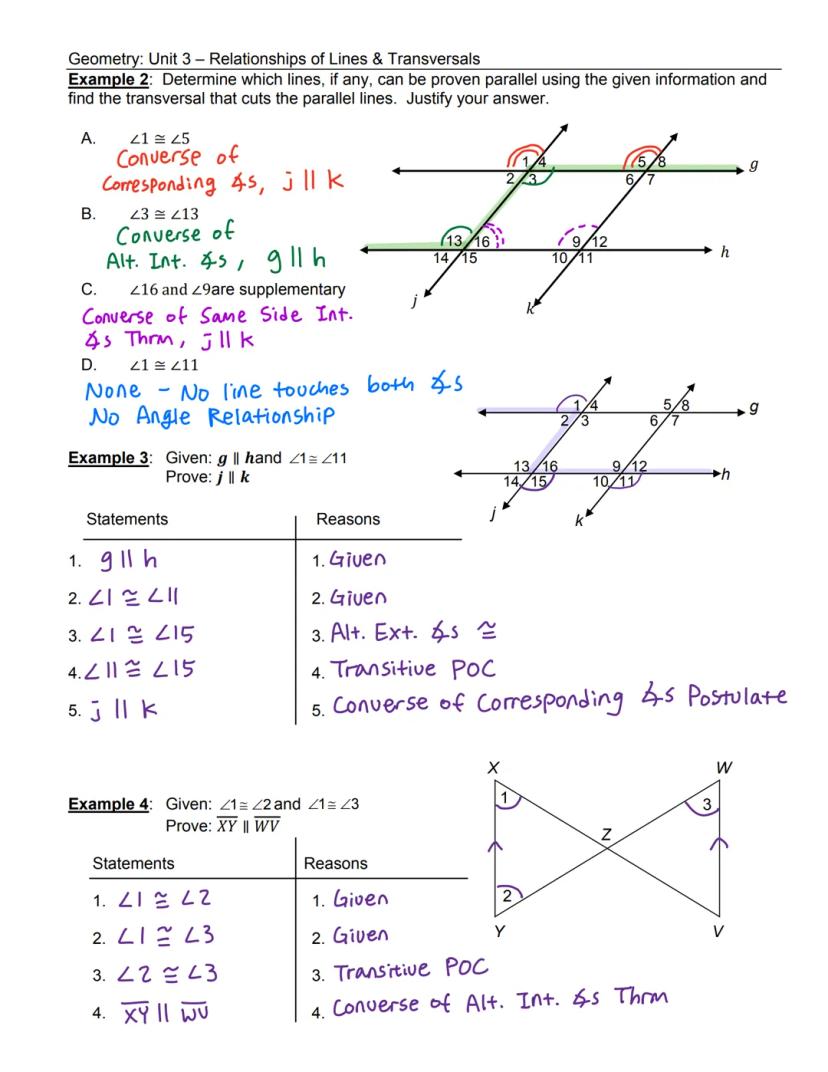 Geometry: Unit 3 – Relationships of Lines & Transversals
Example 2: Determine which lines, if any, can be proven parallel using the given information and
find the transversal that cuts the parallel lines. Justify your answer.
A. ∠1 ≅ ∠5
Converse of
Corresponding ∡s, j || k
B. ∠3 ≅ ∠13
Converse of
Alt. Int. ∡s, g || h
C. ∠16 and ∠9are supplementary
Converse of Same Side Int.
∡s Thrm, j || k
D. ∠1 ≅ ∠11
None - No line touches both ∡s
No Angle Relationship
1 4 5 8 g
2 3 6 7
13 16 9 12 h
14 15 10 11
j k
1 4 5 8 g
2 3 6 7
13 16 9 12 h
14 15 10 11
j k
Example 3: Given: g || hand ∠1≅ ∠11
Prove: j || k
Statements Reasons
1. g || h 1. Given
2. ∠1 ≅ ∠11 2. Given
3. ∠1 ≅ ∠15 3. Alt. Ext. ∡s ≅
4. ∠11 ≅ ∠15 4. Transitive POC
5. j || k 5. Converse of Corresponding ∡s Postulate
Example 4: Given: ∠1≅ ∠2 and ∠1≅ ∠3
Prove: X̅Y̅ || W̅V̅
Statements Reasons
1. ∠1 ≅ ∠2 1. Given
2. ∠1 ≅ ∠3 2. Given
3. ∠2 ≅ ∠3 3. Transitive POC
4. X̅Y̅ || W̅V̅ 4. Converse of Alt. Int. ∡s Thrm
X W
1 3
Z
2
Y V